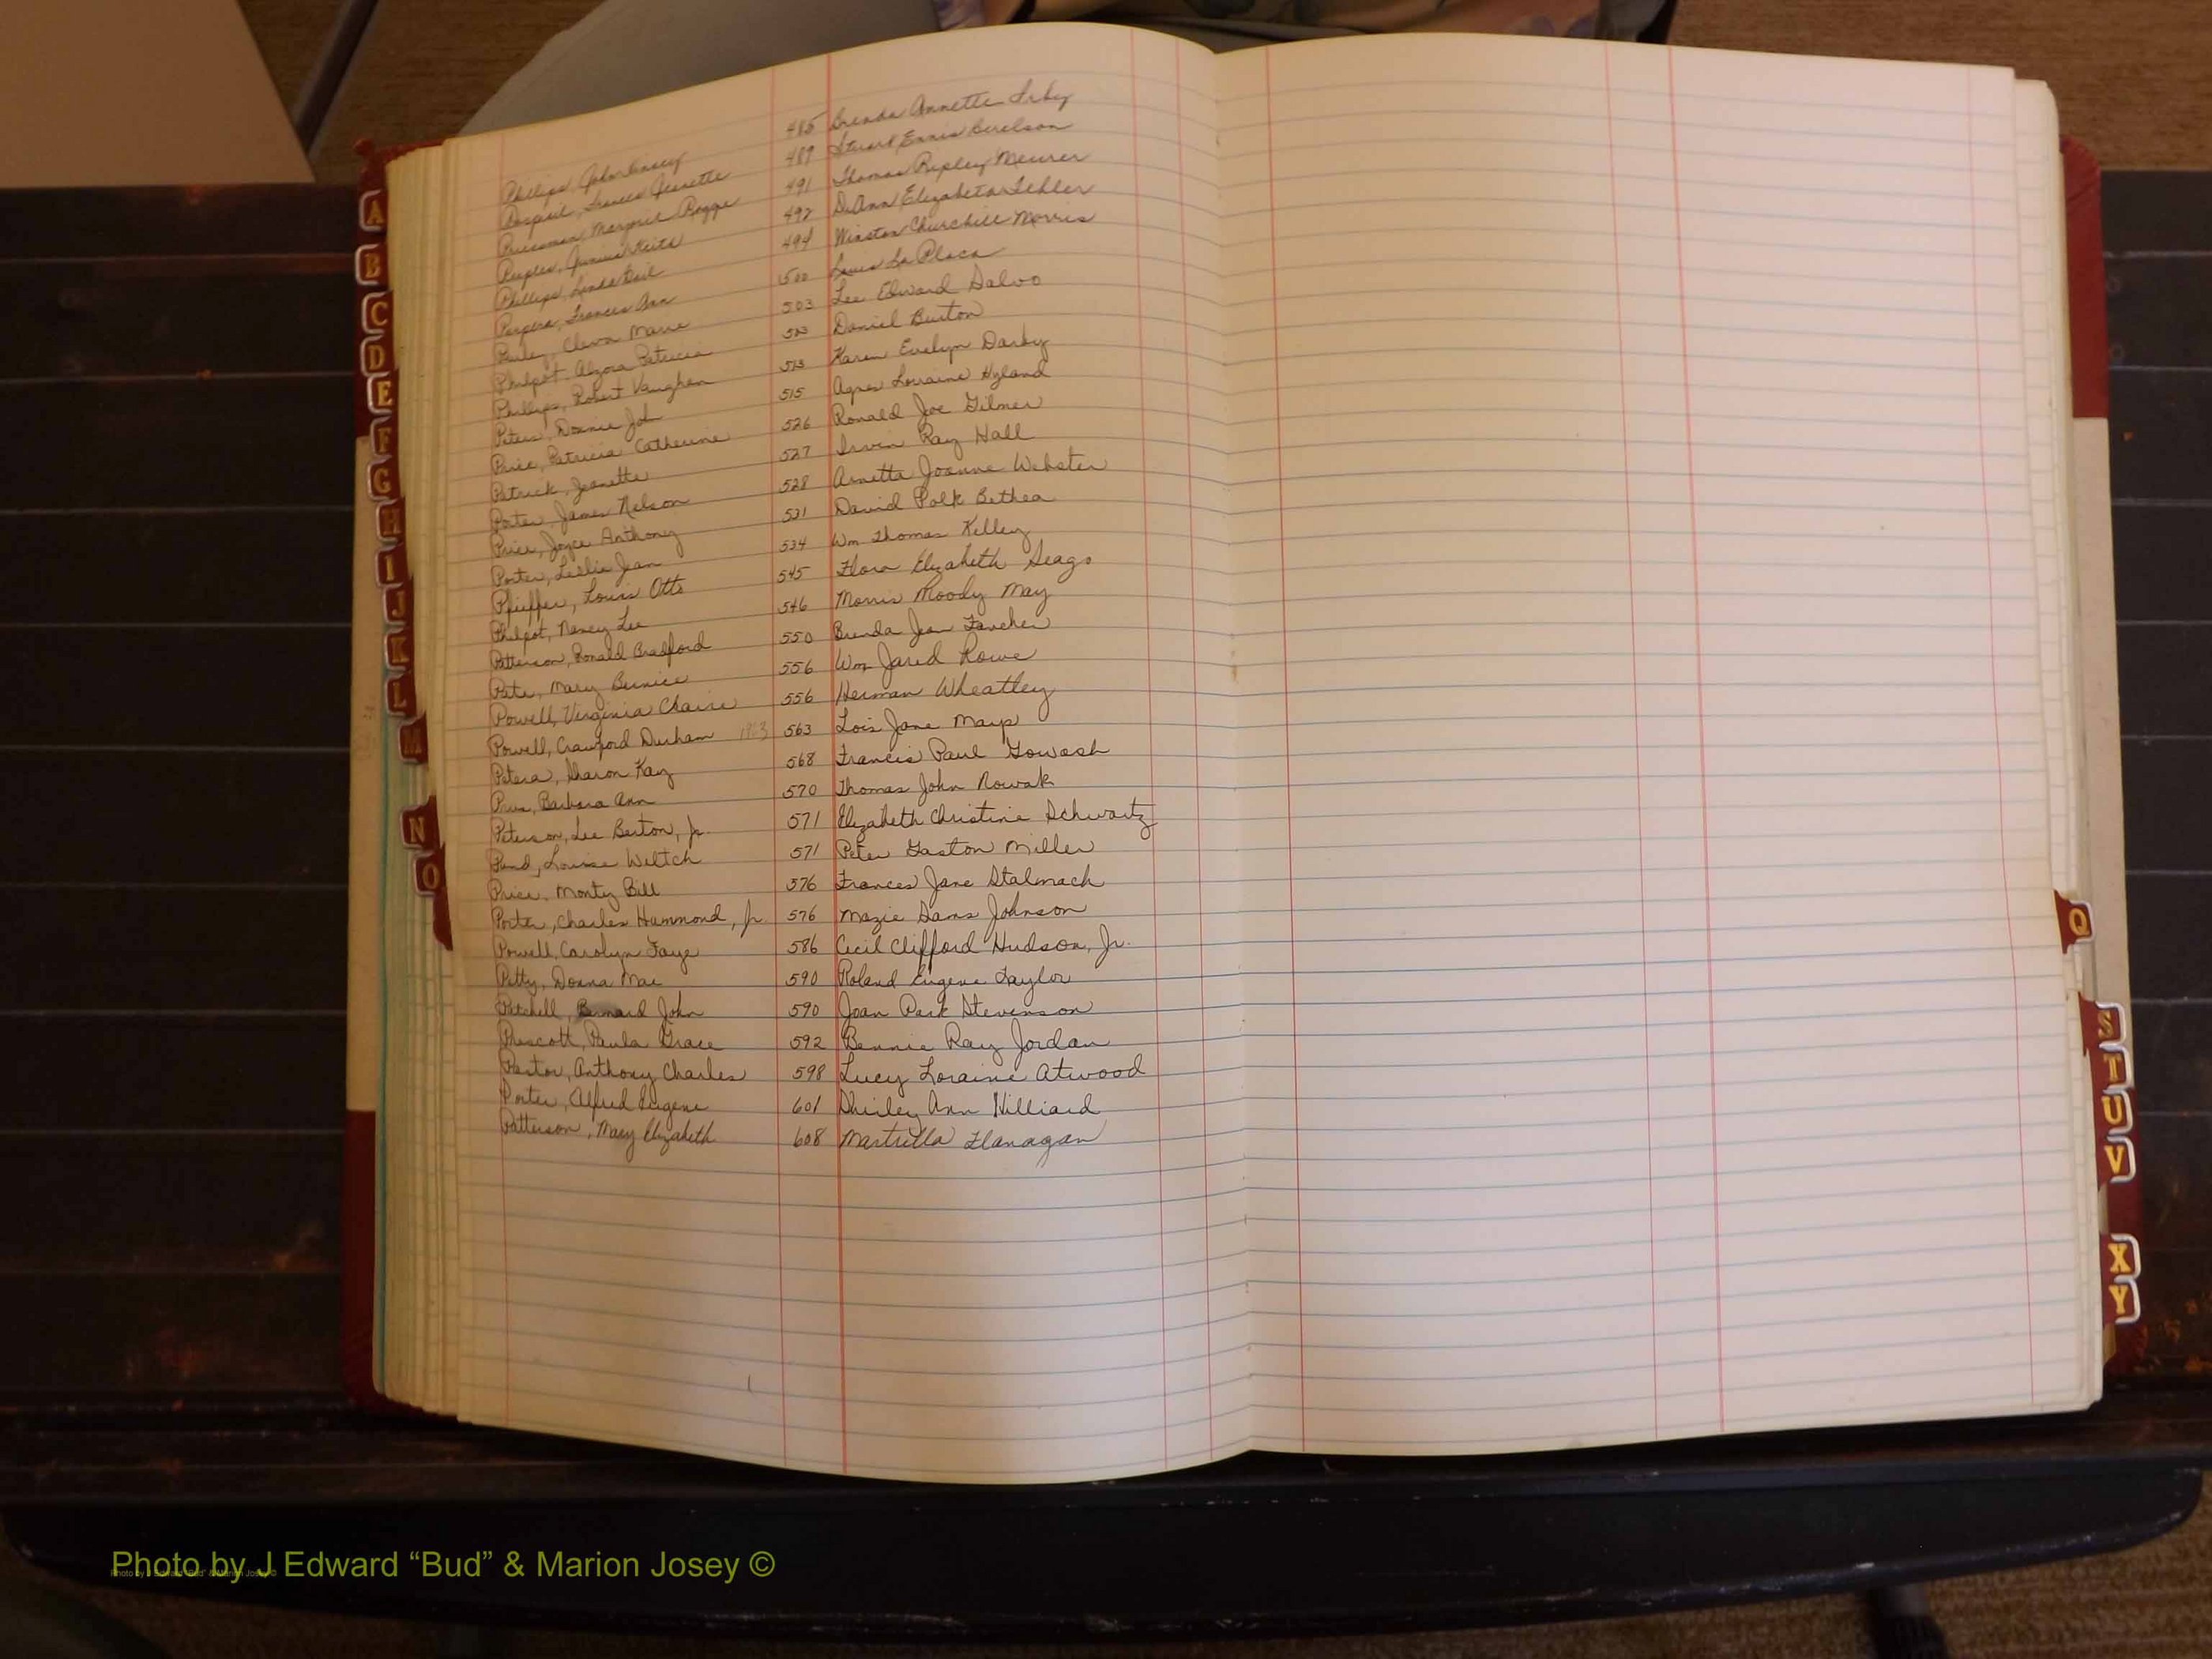 Phillips, John 485 Brenda Annette Irby
Frances Jeanette 489 Stuart Ennis Berelson
Margaret 491 Thomas Ripley Meurer
Peoples, Junius Keith 492 DeAnn Elizabeth
Phillips, Linda Gail 494 Winston Churchill Morris
Frances Ann 500 Louis La Placa
Marie 503 Lee Edward Salvo
Philpot, Alzora Patricia 513 Daniel Burton
Phillips, Robert Vaughan 513 Karen Evelyn Darby
Peters, Donnie Joh 515 Agnes Lorraine Hyland
Price, Patricia Catherine 526 Ronald Joe Gilmer
Patrick, Jeanette 527 Irvin Ray Hall
Porter, James Nelson 528 Arnetta Joanne Webster
Price, Joyce Anthony 531 David Polk Bethea
Porter, Leslie Jean 534 Wm Thomas Kelley
Pfeiffer, Louis Otto 545 Flora Elizabeth Seago
Philpot, Nancy Lee 546 Morris Moody May
Patterson, Ronald Bradford 550 Brenda Jean Fancher
Pate, Mary Bernice 556 Wm Jared Rowe
Powell, Virginia Claire 556 Herman Wheatley
Powell, Crawford Durham 1963 563 Lois Jane Mays
Peters, Sharon Kay 568 Francis Paul Gowash
Prus, Barbara Ann 570 Thomas John Nowak
Peterson, Lee Berton, Jr. 571 Elizabeth Christine Schwartz
Pund, Louise Weltch 571 Peter Gaston Miller
Price, Monty Bill 576 Frances Jane Stalmach
Porter, Charles Hammond, Jr. 576 Mazie Sams Johnson
Powell, Carolyn Faye 586 Cecil Clifford Hudson, Jr.
Petty, Donna Mae 590 Roland Eugene Taylor
Patchell, Bernard John 590 Joan Park Stevenson
Prescott, Paula Grace 592 Bennie Ray Jordan
Pastor, Anthony Charles 598 Lucy Loraine Atwood
Porter, Alfred Eugene 601 Shirley Ann Hilliard
Patterson, Mary Elizabeth 608 Martrilla Flanagan
A
B
C
D
E
F
G
H
I
J
K
L
M
N
O
Q
S
T
U
V
X
Y
Photo by J Edward “Bud” & Marion Josey ©
Photo by J Edward "Bud" & Marion Josey ©